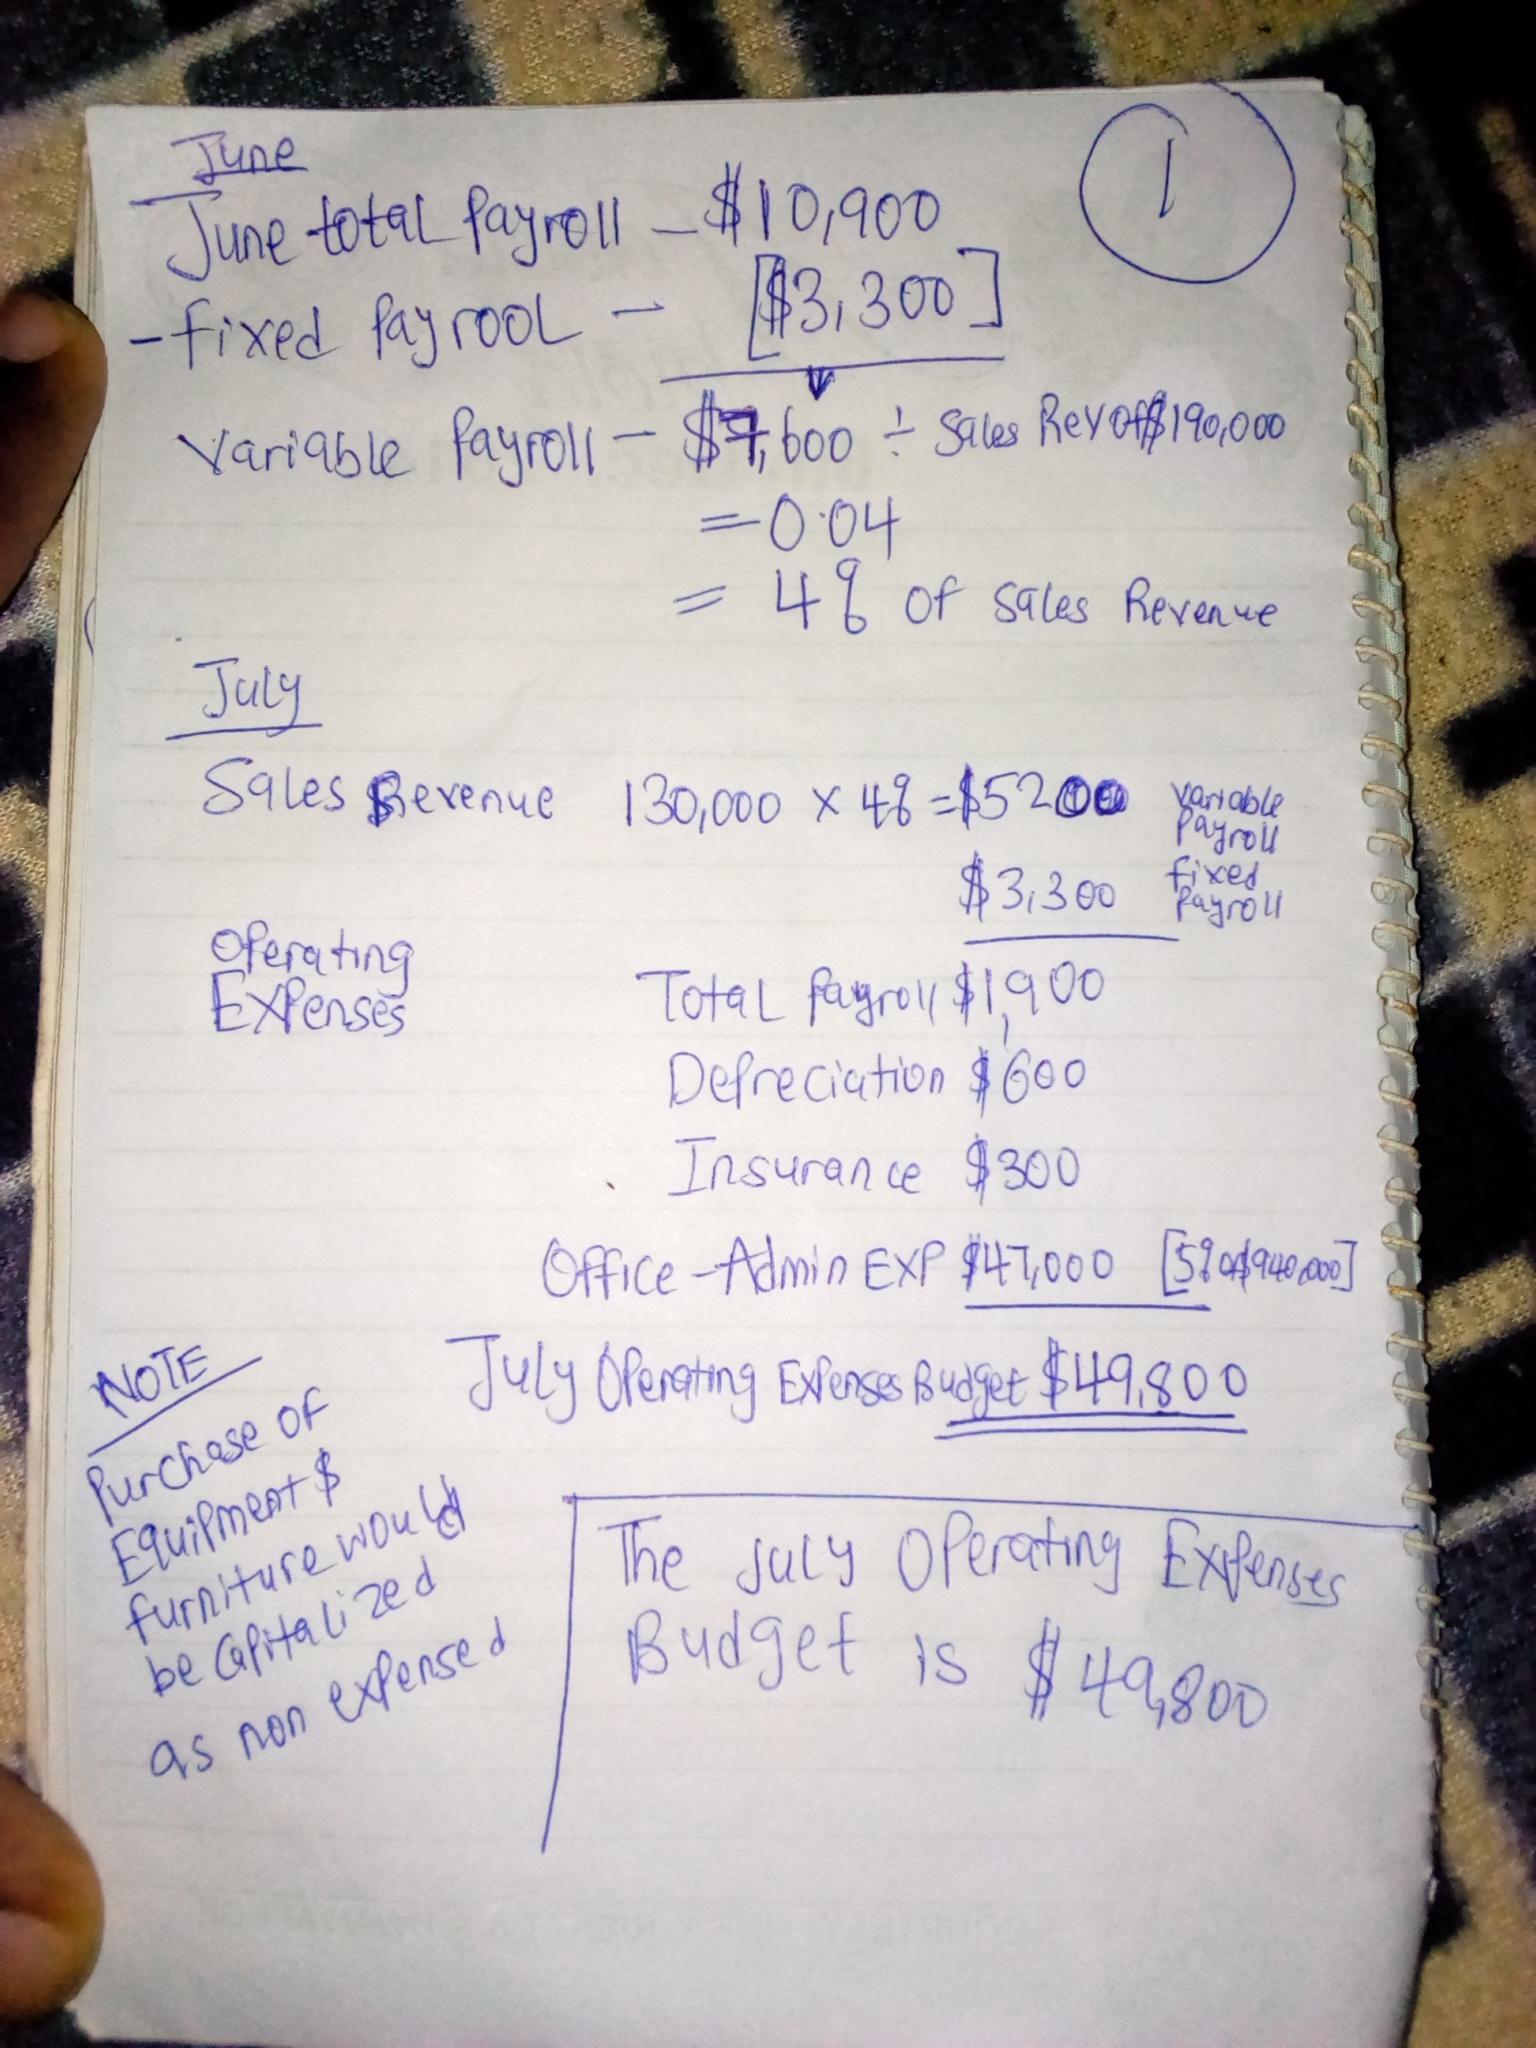 1
June
June total payroll - $10,900
- fixed payrool - [$3,300]
Variable payroll - $7,600 ÷ Sales Rev of $190,000
= 0.04
= 4% of sales Revenue
July
Sales Revenue 130,000 x 4% = $5200 variable payroll
$3,300 fixed payroll
Operating Expenses
Total payroll $1,900
Depreciation $600
Insurance $300
Office - Admin EXP $47,000 [5% of $940,000]
July Operating Expenses Budget $49,800
NOTE
Purchase of
Equipment $
furniture would
be Capitalized
as non expensed
The July Operating Expenses
Budget is $49,800